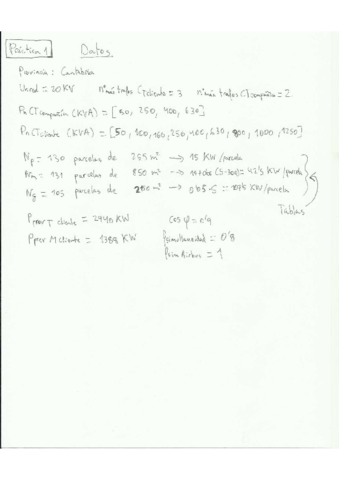 Práctica 1 Datos
Provincia: Cantabria
Ured = 20 KV nº máx trafos CTcliente = 3 nº máx trafos CT compañia = 2
Pn CT compañia (KVA) = [50, 250, 400, 630]
Pn CT cliente (KVA) = [50, 100, 160, 250, 400, 630, 800, 1000, 1250]
Np = 130 parcelas de m² → 15 KW/parcela
Nm = 131 parcelas de 850 m² → = 42'5 KW/parcela
Ng = 103 parcelas de m² → 0'05·S = KW/parcela
Tablas
Pprev T cliente = 2440 KW cos φ = 0'9
Pprev M cliente = 1388 KW Fsimultaneidad = 0'8
= 1